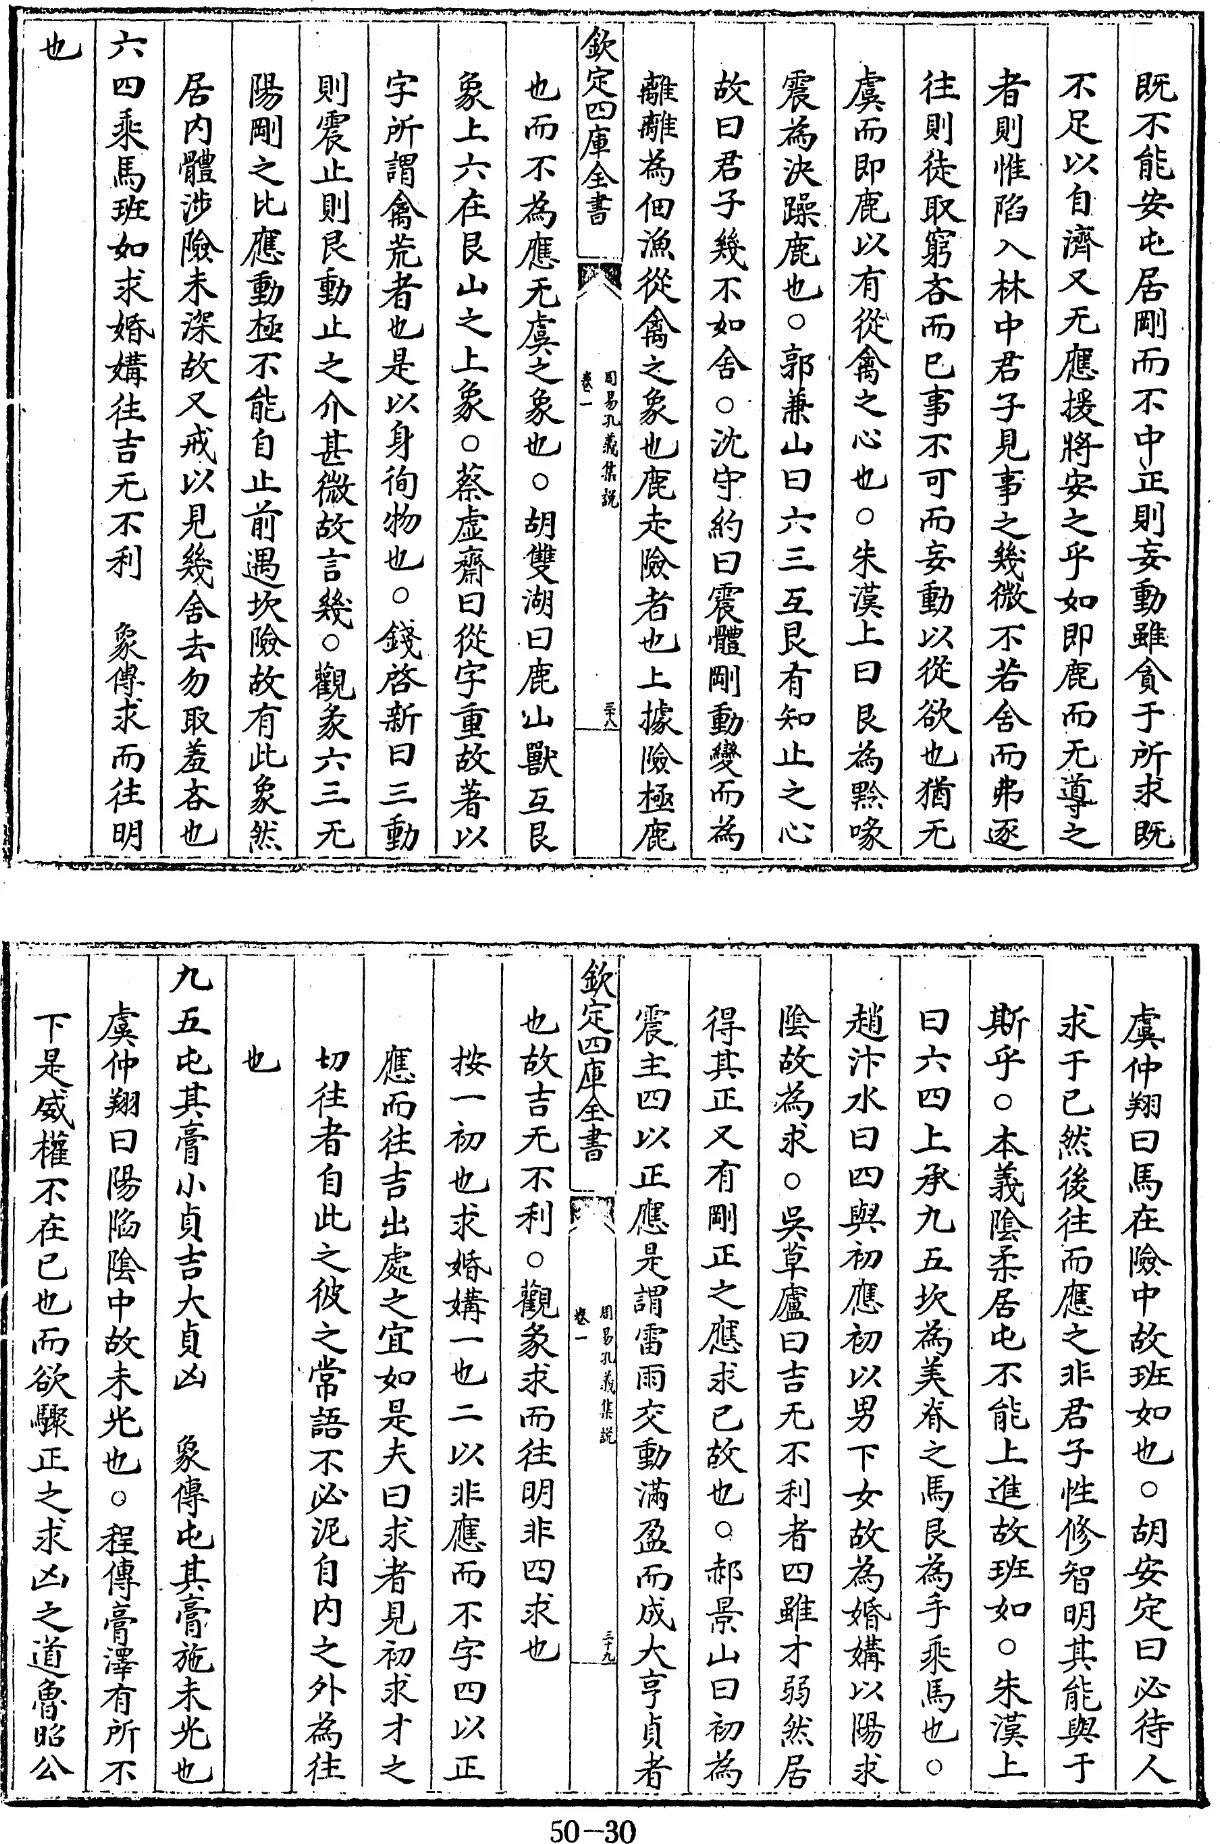 既不能安屯居剛而不中正則妄動雖貪于所求既
不足以自濟又无應援將安之乎如即鹿而无導之
者則惟陷入林中君子見事之幾微不若舍而弗逐
往則徒取窮吝而已事不可而妄動以從欲也猶无
虞而即鹿以有從禽之心也○朱漢上曰艮為黔喙
震為決躁鹿也○郭兼山曰六三互艮有知止之心
故曰君子幾不如舍○沈守約曰震體剛動變而為
離離為佃漁從禽之象也鹿走險者也上據險極鹿
欽定四庫全書
周易孔義集說
卷一
三十八
也而不為應无虞之象也○胡雙湖曰鹿山獸互艮
象上六在艮山之上象○蔡虛齋曰從字重故著以
字所謂禽荒者也是以身徇物也○錢啓新曰三動
則震止則艮動止之介甚微故言幾○觀彖六三无
陽剛之比應動極不能自止前遇坎險故有此象然
居內體涉險未深故又戒以見幾舍去勿取羞吝也
六四乘馬班如求婚媾往吉无不利　象傳求而往明
也
虞仲翔曰馬在險中故班如也○胡安定曰必待人
求于已然後往而應之非君子性修智明其能與于
斯乎○本義陰柔居屯不能上進故班如○朱漢上
曰六四上承九五坎為美脊之馬艮為手乘馬也○
趙汴水曰四與初應初以男下女故為婚媾以陽求
陰故為求○吳草廬曰吉无不利者四雖才弱然居
得其正又有剛正之應求已故也○郝景山曰初為
震主四以正應是謂雷雨交動滿盈而成大亨貞者
欽定四庫全書
周易孔義集說
卷一
三十九
也故吉无不利○觀彖求而往明非四求也
按一初也求婚媾一也二以非應而不字四以正
應而往吉出處之宜如是夫曰求者見初求才之
切往者自此之彼之常語不必泥自內之外為往
也
九五屯其膏小貞吉大貞凶　象傳屯其膏施未光也
虞仲翔曰陽陷陰中故未光也○程傳膏澤有所不
下是威權不在已也而欲驟正之求凶之道魯昭公
50-30